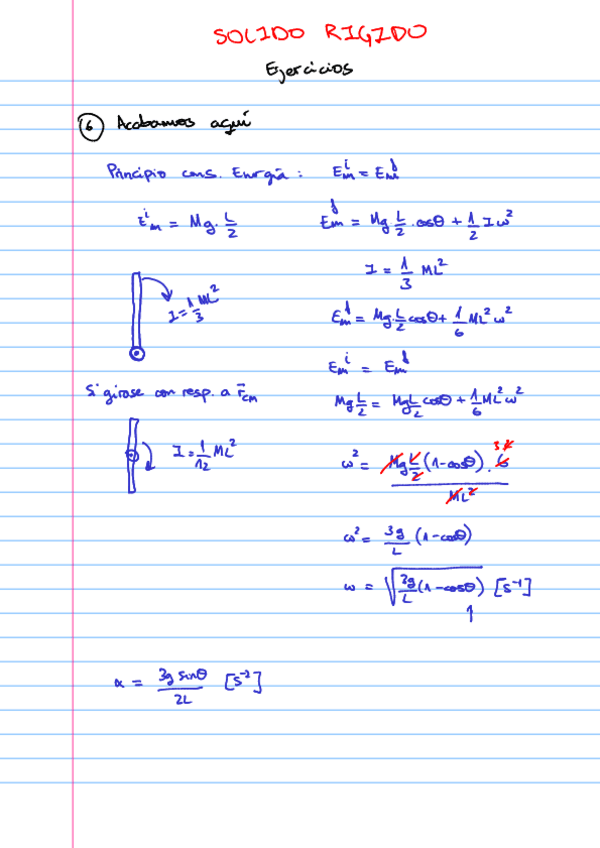 SOLIDO RIGIDO
Ejercicios
6 Acabamos aquí
Principio cons. Energía: E_m^i = E_m^f
E_m^i = Mg · L/2
E_m^f = Mg L/2 · cosθ + 1/2 I ω²
I = 1/3 ML²
I = 1/3 ML²
E_m^f = Mg · L/2 cosθ + 1/6 ML² ω²
E_m^i = E_m^f
Si girase con resp. a r⃗_CM
Mg L/2 = Mg L/2 cosθ + 1/6 ML² ω²
I = 1/12 ML²
ω² = Mg L/2 (1-cosθ) · 6 / ML²
3
ω² = 3g/L (1-cosθ)
ω = √(3g/L (1-cosθ)) [s⁻¹]
α = 3g sinθ / 2L [s⁻²]